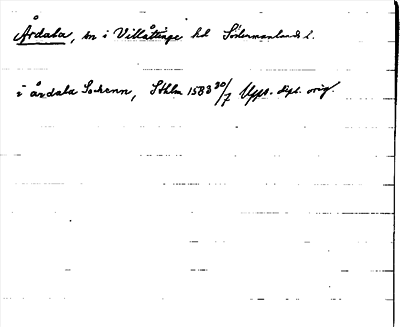 Årdala, sn i Villåttinge hd Södermanlands l.
i årdala Sockenn, Sthlm 1583 30/7 Upps. dipl. orig.